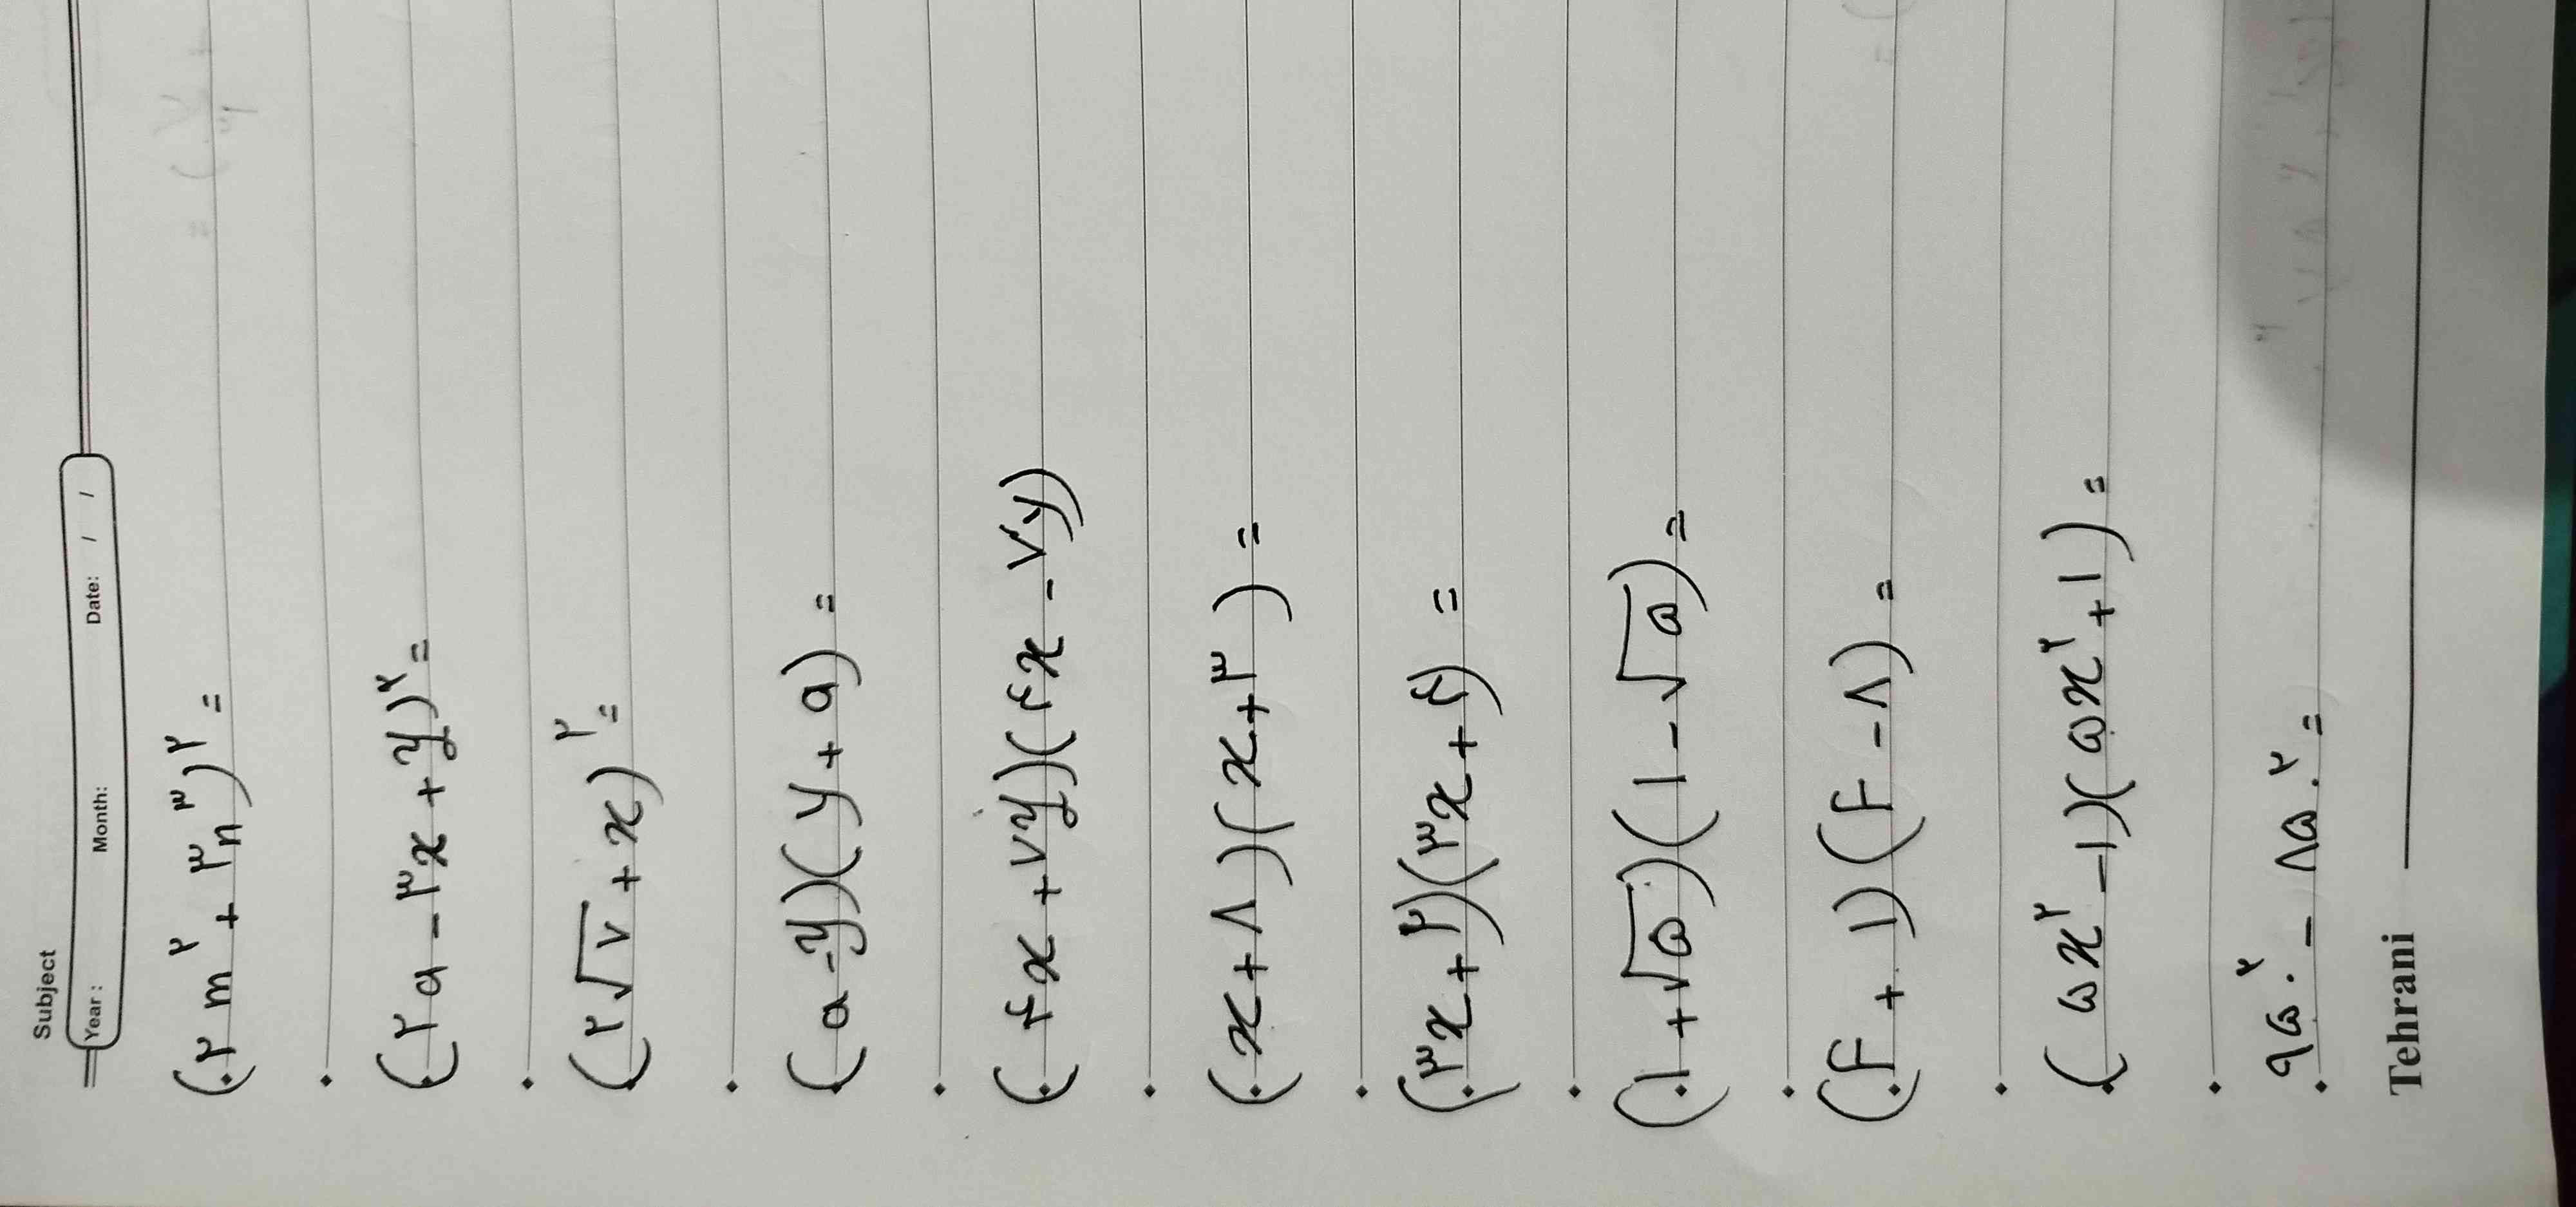 Subject
Year: Month: Date: / /
(۲m^۲ + ۳n^۳)^۲ =
(۲a - ۳x + y)^۲ =
(۲√۷ + x)^۲ =
(a - y)(y + a) =
(۴x + ۷y)(۴x - ۷y)
(x + ۸)(x + ۳) =
(۳x + ۲)(۳x + ۴) =
(۱ + √۵)(۱ - √۵) =
(F + ۱)(F - ۸) =
(۵x^۲ - ۱)(۵x^۲ + ۱) =
۹۵۰^۲ - ۸۵۰^۲ =
Tehrani